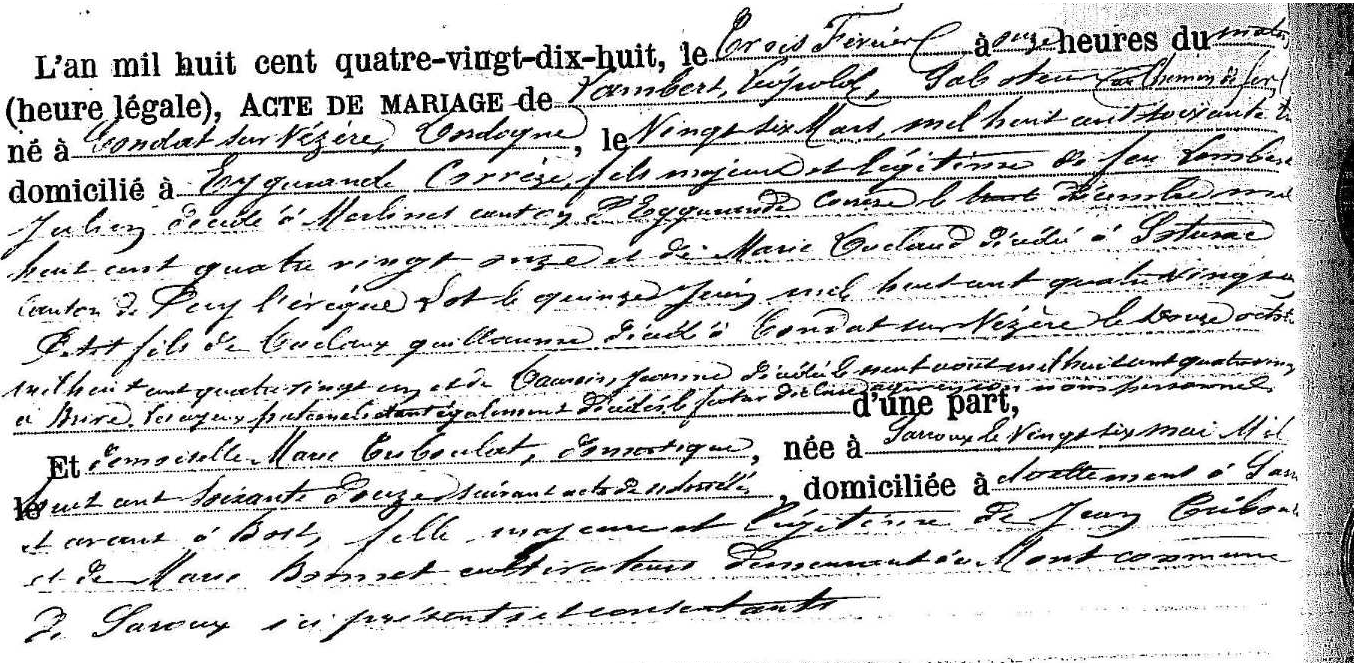 L'an mil huit cent quatre-vingt-dix-huit, le Trois Février à onze heures du matin
(heure légale), ACTE DE MARIAGE de Lambert, Léopold, au Chemin de fer
né à Condat sur Vézère, Dordogne, le Vingt six Mars, mil huit cent soixante
domicilié à Eygurande Corrèze, fils majeur et légitime de feu Lambert
Julien décédé à Merlines canton d'Eygurande Corrèze le décembre mil
huit cent quatre vingt onze et de Marie décédée à Soturac
canton de Puy l'évêque Lot le quinze Juin mil huit cent quatre vingt
Petit fils de guillaume décédé à Condat sur Vézère le douze octobre
mil huit cent quatre vingt un et de Jeanne décédée le neuf août mil huit cent quatre vingt
a Brive. les ayeux paternels étant également décédés le futur déclare en son nom personnel
d'une part,
Et demoiselle Marie domestique, née à Sarroux le Vingt six mai Mil
le huit cent soixante douze suivant acte de , domiciliée à à Sarroux
et avant à Bort, fille majeure et légitime de Jean
et de Marie Bonnet cultivateurs demeurant au Mont commune
de Saroux ici présents et consentants